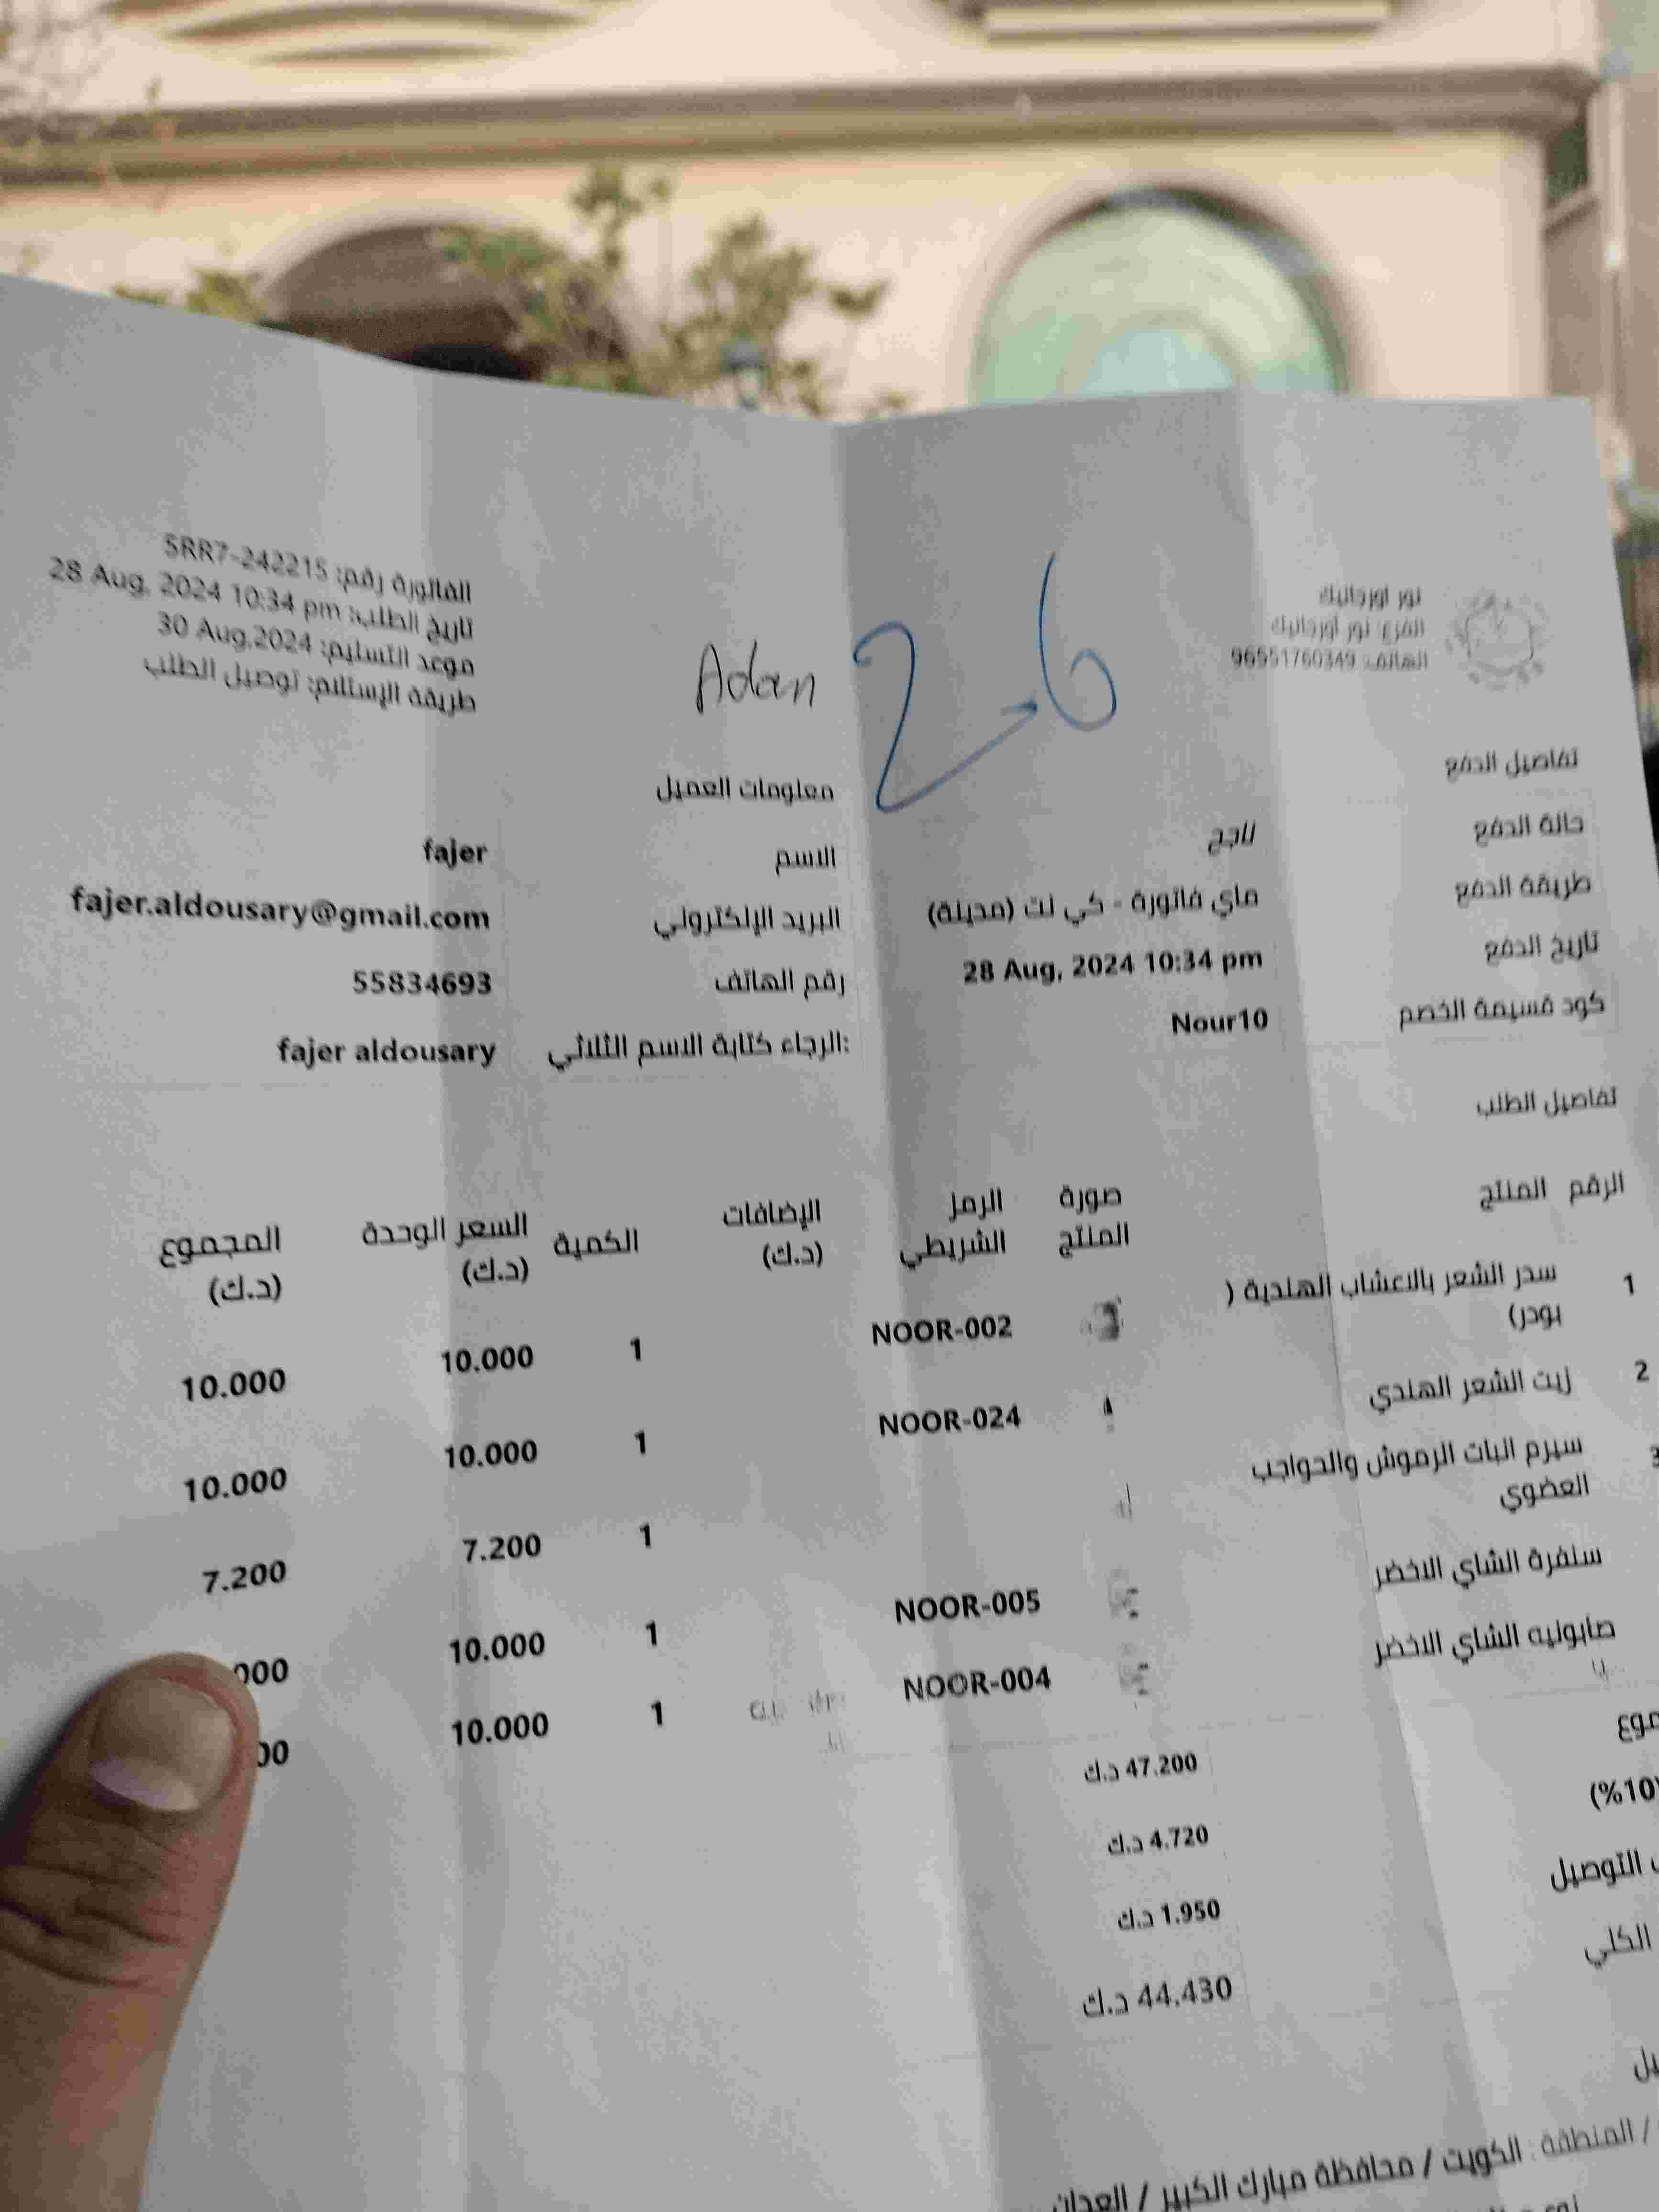 نور اورجانيك
الفرع: نور أورجانيك
الهاتف: 96551760349
الفاتورة رقم: 5RR7-242215
تاريخ الطلب: 28 Aug, 2024 10:34 pm
موعد التسليم: 30 Aug,2024
طريقة الإستلام: توصيل الطلب
Adan
2 → 6
تفاصيل الدفع
حالة الدفع ناجح
طريقة الدفع ماي فاتورة - كي نت (مدينة)
تاريخ الدفع 28 Aug, 2024 10:34 pm
كود قسيمة الخصم Nour10
معلومات العميل
الاسم fajer
البريد الإلكتروني fajer.aldousary@gmail.com
رقم الهاتف 55834693
الرجاء كتابة الاسم الثلاثي: fajer aldousary
تفاصيل الطلب
الرقم المنتج صورة المنتج الرمز الشريطي الإضافات (د.ك) الكمية السعر الوحدة (د.ك) المجموع (د.ك)
1 سدر الشعر بالاعشاب الهندية ( بودر) NOOR-002 1 10.000 10.000
2 زيت الشعر الهندي NOOR-024 1 10.000 10.000
3 سيرم انبات الرموش والحواجب العضوي 1 7.200 7.200
سنفرة الشاي الاخضر NOOR-005 1 10.000
صابونيه الشاي الاخضر NOOR-004 1 10.000
47.200 د.ك
(%10 4.720 د.ك
التوصيل 1.950 د.ك
الكلي 44.430 د.ك
/ المنطقة : الكويت / محافظة مبارك الكبير / العدان